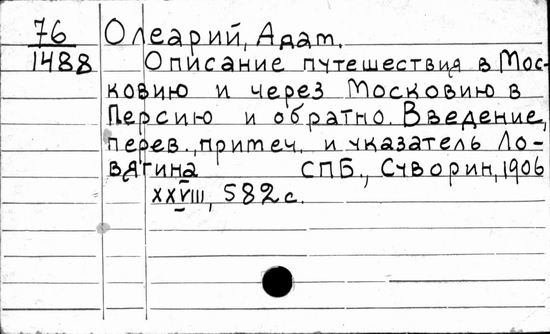 76 Олеарий, Адам.
1488 Описание путешествия в Мос-
ковию и через Московию в
Персию и обратно. Введение,
перев., примеч. и указатель Ло-
вягина СПБ., Суворин, 1906
XXVIII, 582 с.